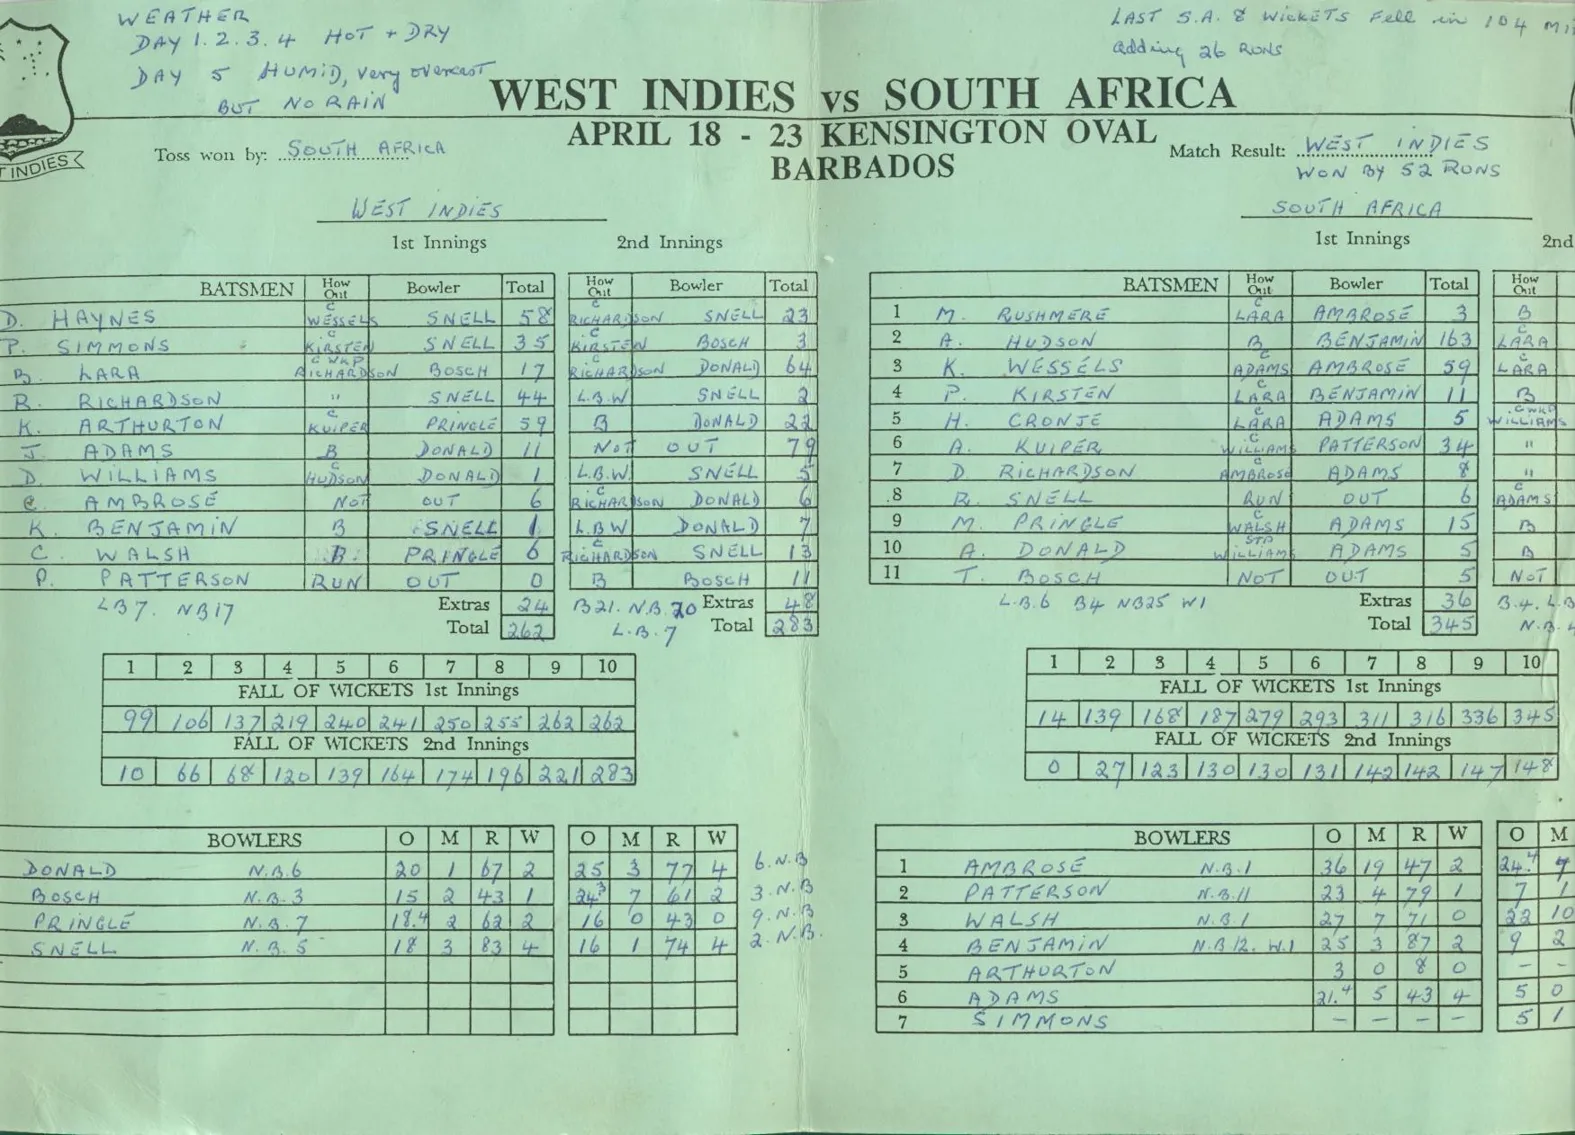 WEATHER
DAY 1.2.3.4 HOT + DRY
DAY 5 HUMID, very overcast
BUT NO RAIN
LAST S.A. 8 WICKETS Fell in 104 Mi
adding 26 RUNS
WEST INDIES vs SOUTH AFRICA
APRIL 18 - 23 KENSINGTON OVAL
BARBADOS
T INDIES
Toss won by: SOUTH AFRICA
Match Result: WEST INDIES
WON BY 52 RUNS
WEST INDIES
1st Innings 2nd Innings
BATSMEN How Out Bowler Total How Out Bowler Total
D. HAYNES c WESSELS SNELL 58 c RICHARDSON SNELL 23
P. SIMMONS c KIRSTEN SNELL 35 c KIRSTEN BOSCH 3
B. LARA c WKP RICHARDSON BOSCH 17 c RICHARDSON DONALD 64
R. RICHARDSON " SNELL 44 L.B.W SNELL 2
K. ARTHURTON c KUIPER PRINGLE 59 B DONALD 22
J. ADAMS B DONALD 11 NOT OUT 79
D. WILLIAMS c HUDSON DONALD 1 L.B.W. SNELL 5
C. AMBROSE NOT OUT 6 c RICHARDSON DONALD 6
K. BENJAMIN B SNELL 1 L.B.W DONALD 7
C. WALSH B. PRINGLE 6 c RICHARDSON SNELL 13
P. PATTERSON RUN OUT 0 B BOSCH 11
LB7. NB17 Extras 24 B21. N.B.20 Extras 48
Total 262 L.B.7 Total 283
1 2 3 4 5 6 7 8 9 10
FALL OF WICKETS 1st Innings
99 106 137 219 240 241 250 255 262 262
FALL OF WICKETS 2nd Innings
10 66 68 120 139 164 174 196 221 283
BOWLERS O M R W O M R W
DONALD N.B.6 20 1 67 2 25 3 77 4 6.N.B
BOSCH N.B.3 15 2 43 1 24.3 7 61 2 3.N.B
PRINGLE N.B.7 18.4 2 62 2 16 0 43 0 9.N.B
SNELL N.B.5 18 3 83 4 16 1 74 4 2.N.B.
SOUTH AFRICA
1st Innings 2nd
BATSMEN How Out Bowler Total How Out
1 M. RUSHMERE c LARA AMBROSE 3 B
2 A. HUDSON B BENJAMIN 163 c LARA
3 K. WESSELS c ADAMS AMBROSE 59 c LARA
4 P. KIRSTEN c LARA BENJAMIN 11 B
5 H. CRONJE c LARA ADAMS 5 c WKP WILLIAMS
6 A. KUIPER c WILLIAMS PATTERSON 34 "
7 D. RICHARDSON c AMBROSE ADAMS 8 "
8 R. SNELL RUN OUT 6 c ADAMS
9 M. PRINGLE c WALSH ADAMS 15 B
10 A. DONALD STP WILLIAMS ADAMS 5 B
11 T. BOSCH NOT OUT 5 NOT
L.B.6 B4 NB25 W1 Extras 36 B.4. L.B
Total 345 N.B.4
1 2 3 4 5 6 7 8 9 10
FALL OF WICKETS 1st Innings
14 139 168 187 279 293 311 316 336 345
FALL OF WICKETS 2nd Innings
0 27 123 130 130 131 142 142 147 148
BOWLERS O M R W O M
1 AMBROSE N.B.1 36 19 47 2 24.4 7
2 PATTERSON N.B.11 23 4 79 1 7 1
3 WALSH N.B.1 27 7 71 0 22 10
4 BENJAMIN N.B 12. W.1 25 3 87 2 9 2
5 ARTHURTON 3 0 8 0 - -
6 ADAMS 21.4 5 43 4 5 0
7 SIMMONS - - - - 5 1